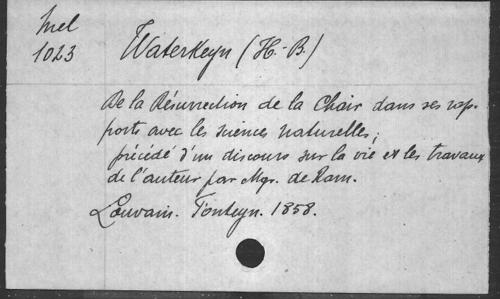 Mel
1023
Waterkeyn (H.-B.)
De la Résurrection de la Chair dans ses rap-
ports avec les sciences naturelles;
précédé d'un discours sur la vie et les travaux
de l'auteur par Mgr. de Ram.
Louvain. Fonteyn. 1858.